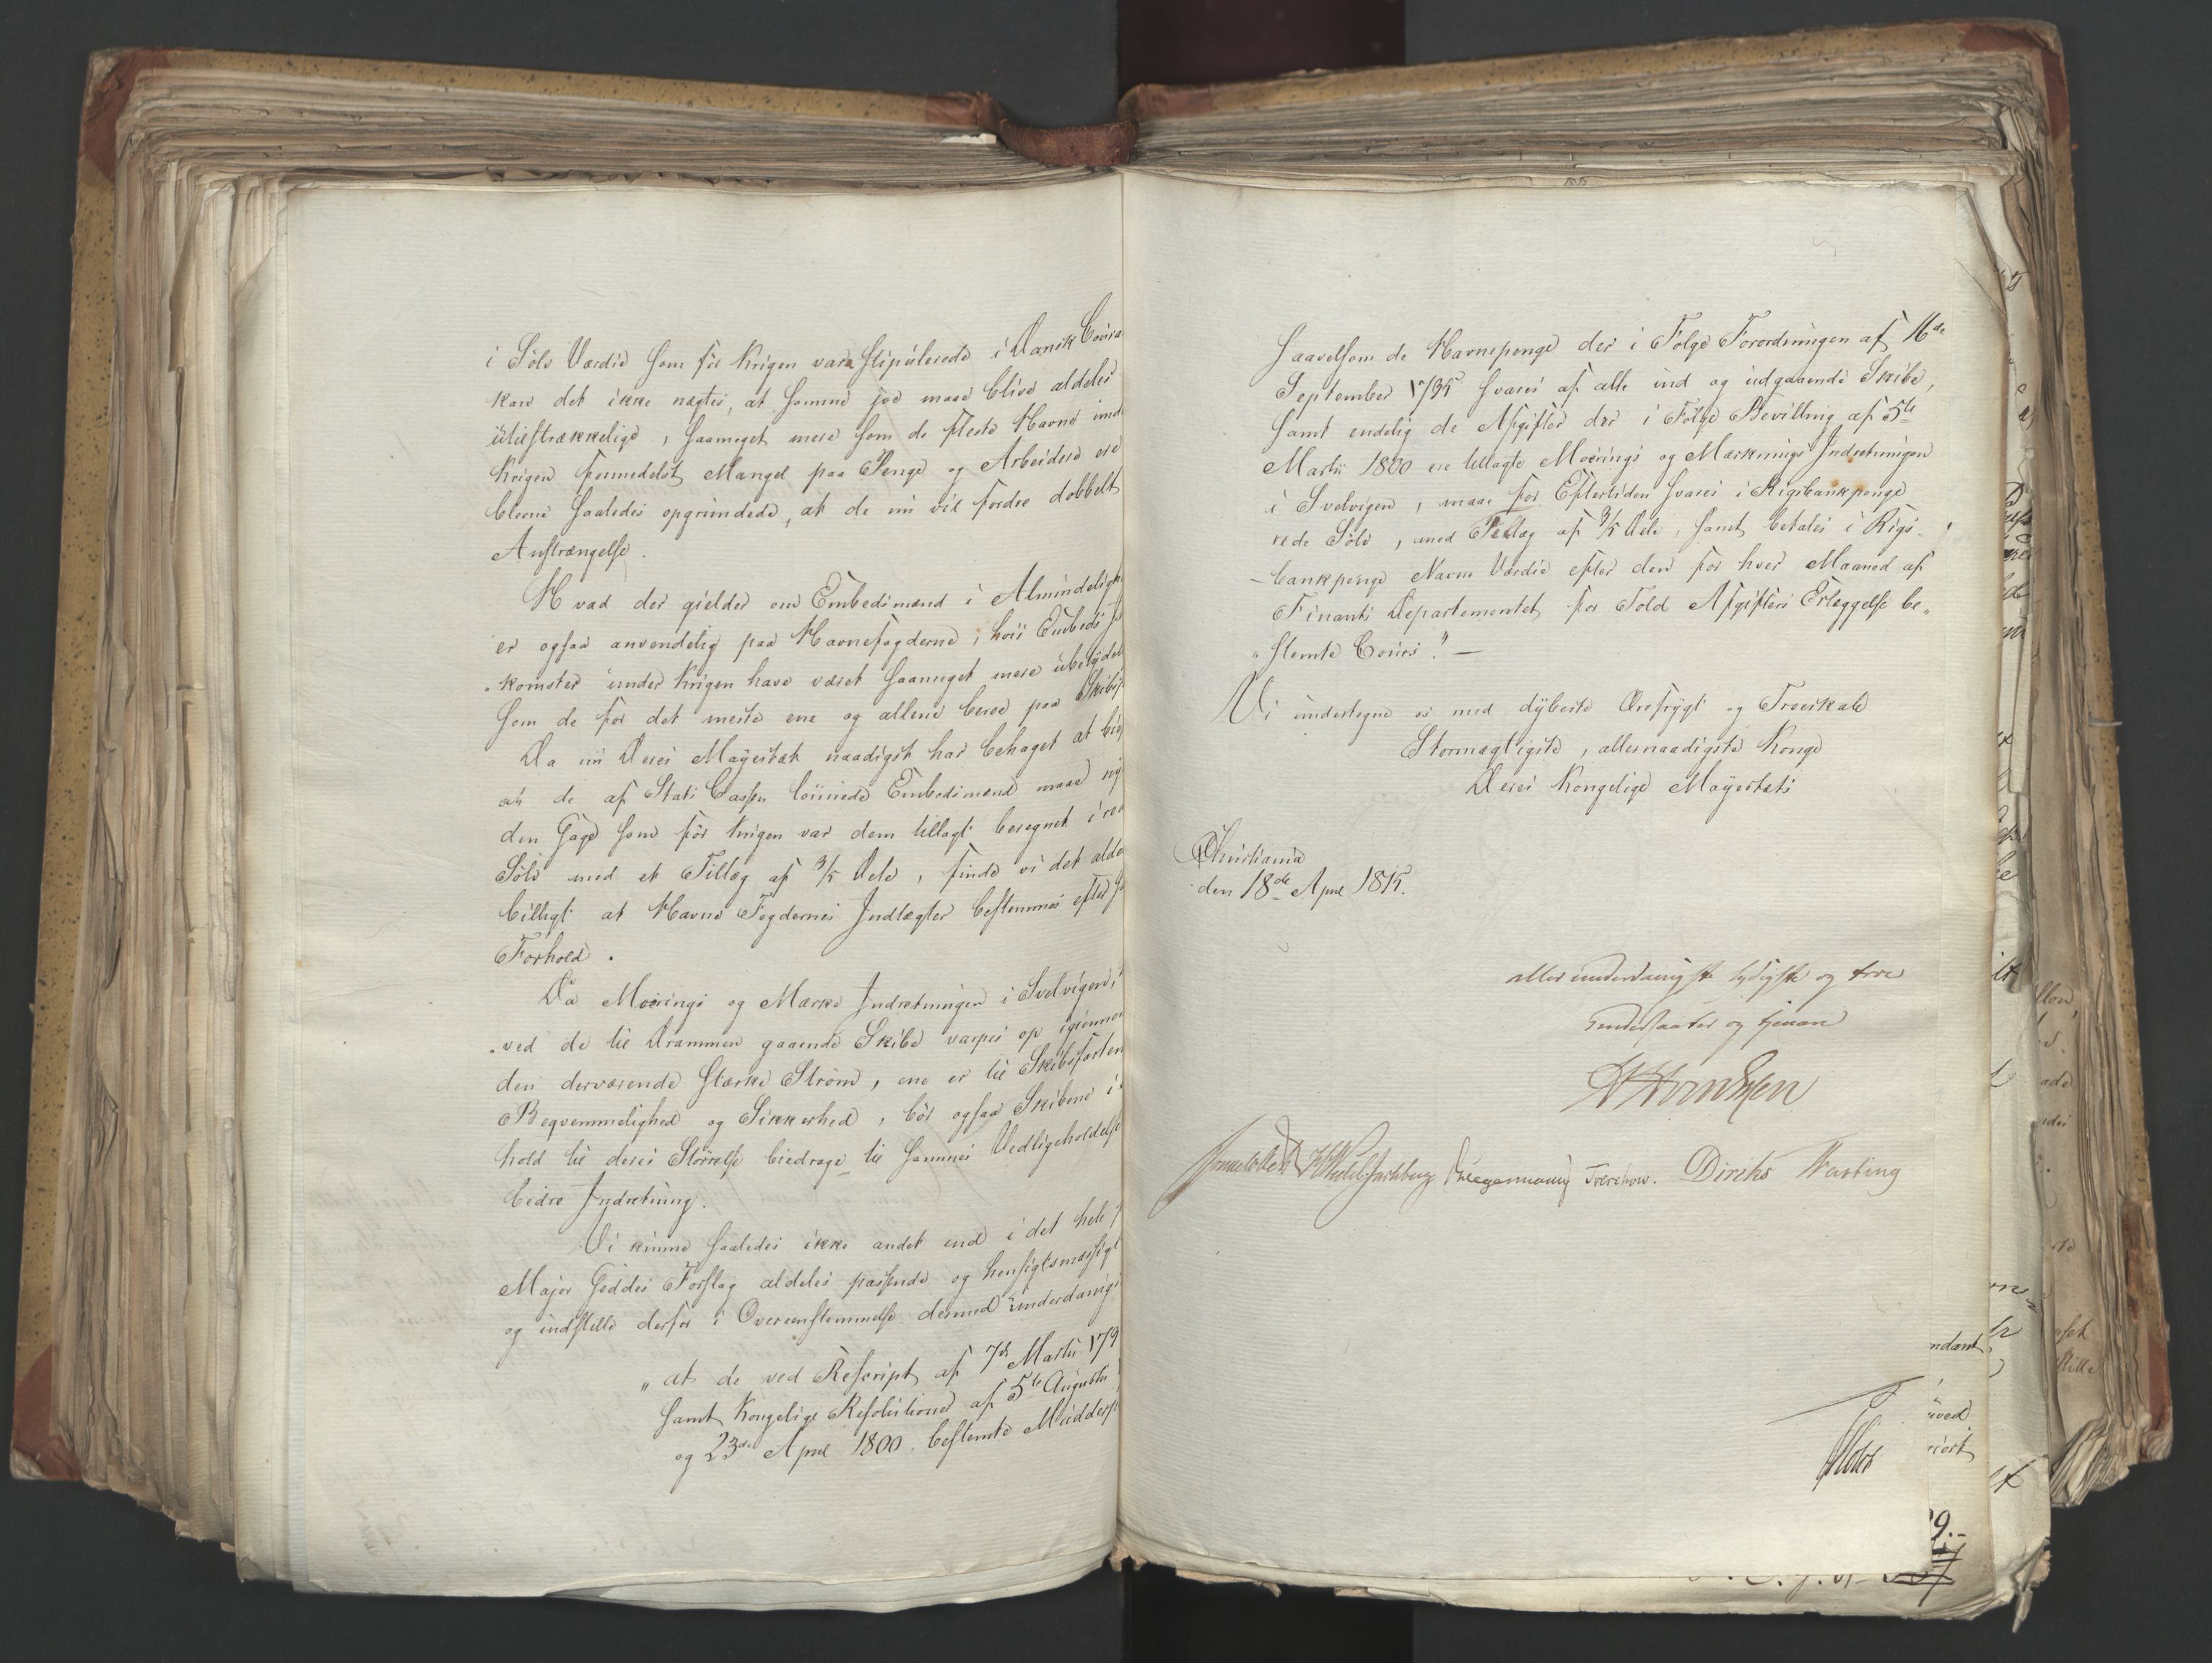 i Sölv Værdie som för Krigen vare stipulerede i Dansk Coura
kan det ikke nægtes, at samme jo maae blive aldeles
utilstrækkelige, saameget mere som de fleste Havne und
Krigen formedelst Mangel paa Penge og Arbeidere ere
blevne saaledes opgrundede, at de nu vil fordre dobbelt
Anstrængelse.
Hvad der gielder om Embedsmænd i Almindeligh
er ogsaa anvendelig paa Havnefogderne, hvis Embeds I
komster under Krigen have været saameget mere ubetydel
som de for det meste ene og allene beroe paa Skibs
Da nu Deres Mayestæt naadigst har behaget at
at de af Stats Cassen lönnede Embedsmænd maae ny
den Gage som för Krigen var dem tillagt beregnet i re
Sölv med et Tillæg af 3/5 Dele, finde vi det alde
billigt at Havne Fogdernes Indtægter bestemmes efter
Forhold.
Da Moorings og Mærke Indretningen i Svelvigen,
ved de til Drammen gaaende Skibe varpes op igiennem
den derværende stærke Ström, ene er til Skibsfarten
Beqvemmelighed og Sikkerhed, bör ogsaa Skibene i
hold til deres Störrelse bidrage til sammes Vedligeholdelse
bedre Indretning.
Vi kunne saaledes ikke andet end i det hele
Major Geddes Forslag aldeles passende og hensigtsmæssigt
og indstille derfor i Overeenstemmelse dermed underdanigs
"at de ved Rescript af 7de Martii 179
samt Kongelige Resolutioner af 5te Augusti
og 23de April 1800 bestemte Mudder
saavelsom de Havnepenge der i Fölge Forordningen af 16de
September 1735 svares af alle ind og udgaaende Skibe,
samt endelig de Afgifter der i Fölge Bevilling af 5te
Martii 1800 ere tillagte Moorings og Mærknings Indretningen
i Svelvigen, maae for Eftertiden svares i Rigsbankpenge
rede Sölv, med Tillæg af 3/5 Dele, samt betales i Rigs-
-bankpenge Navne Værdie efter den for hver Maaned af
Finants Departementet for Told Afgifters Erlæggelse be„
„stemte Cours." —
Vi undertegne os med dybeste Ærefrygt og Troeskab
Stormægtigste, allernaadigste Konge
Deres Kongelige Mayestæts
Christiania
den 18de April 1815.
allerunderdanigste lydigste og troe
undersaatter og tjenere
Sommerhielm HWedelJarlsberg Hegermann Treschow. Diriks Hasting
Holst